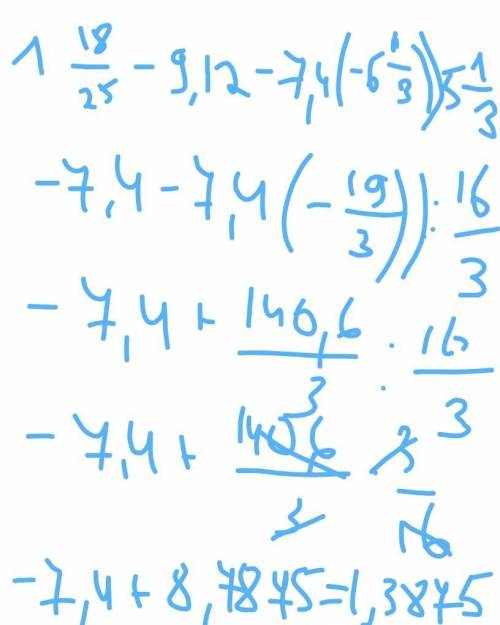 1 18/25 - 9,12 - 7,4(-6 1/3)) 5 1/3
-7,4 - 7,4(-19/3)) : 16/3
-7,4 + 140,6/3 : 16/3
-7,4 + 140,6/3 × 3/16
-7,4 + 8,7875 = 1,3875